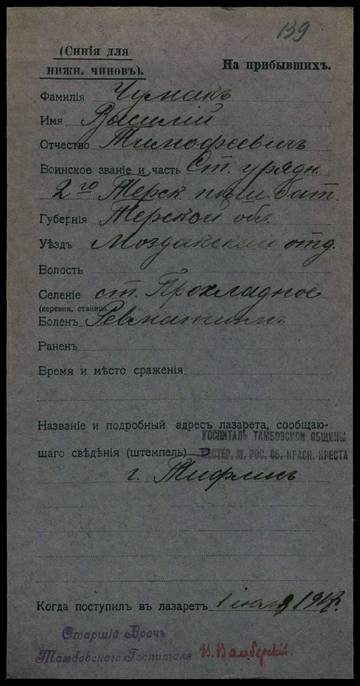 139
(Синія для
нижн. чиновъ).
На прибывшихъ.
Фамилія Чумакъ
Имя Василій
Отчество Тимофеевичъ
Воинское званіе и часть Ст. урядн.
2го Терск. пласт. бат.
Губернія Терской обл.
Уѣздъ Моздокскаго отд.
Волость
Селеніе ст. Прохладное
(деревня, станица)
Боленъ Ревматизмъ
Раненъ
Время и мѣсто сраженія
Названіе и подробный адресъ лазарета, сообщаю-
щаго свѣдѣнія (штемпель)
ГОСПИТАЛЬ ТАМБОВСКОЙ ОБЩИНЫ
СЕСТЕР. М. РОС. ОБ. КРАСН. КРЕСТА
г. Тифлисъ
Когда поступилъ въ лазаретъ 1
Старшій Врачъ
Тамбовскаго Госпиталя